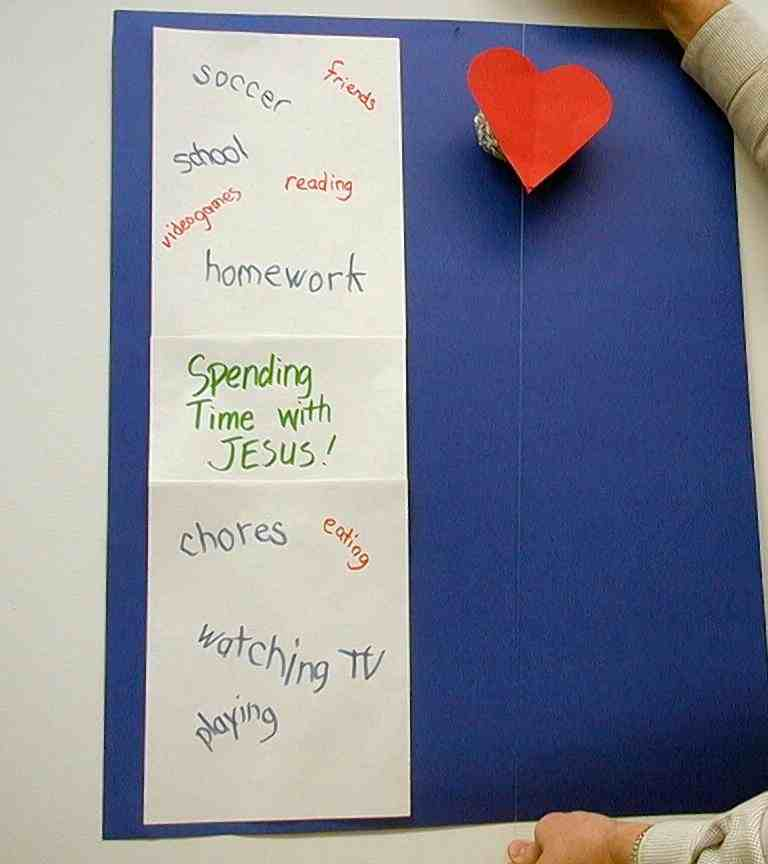 soccer
friends
school
reading
videogames
homework
Spending
Time with
JESUS!
chores
eating
watching TV
playing